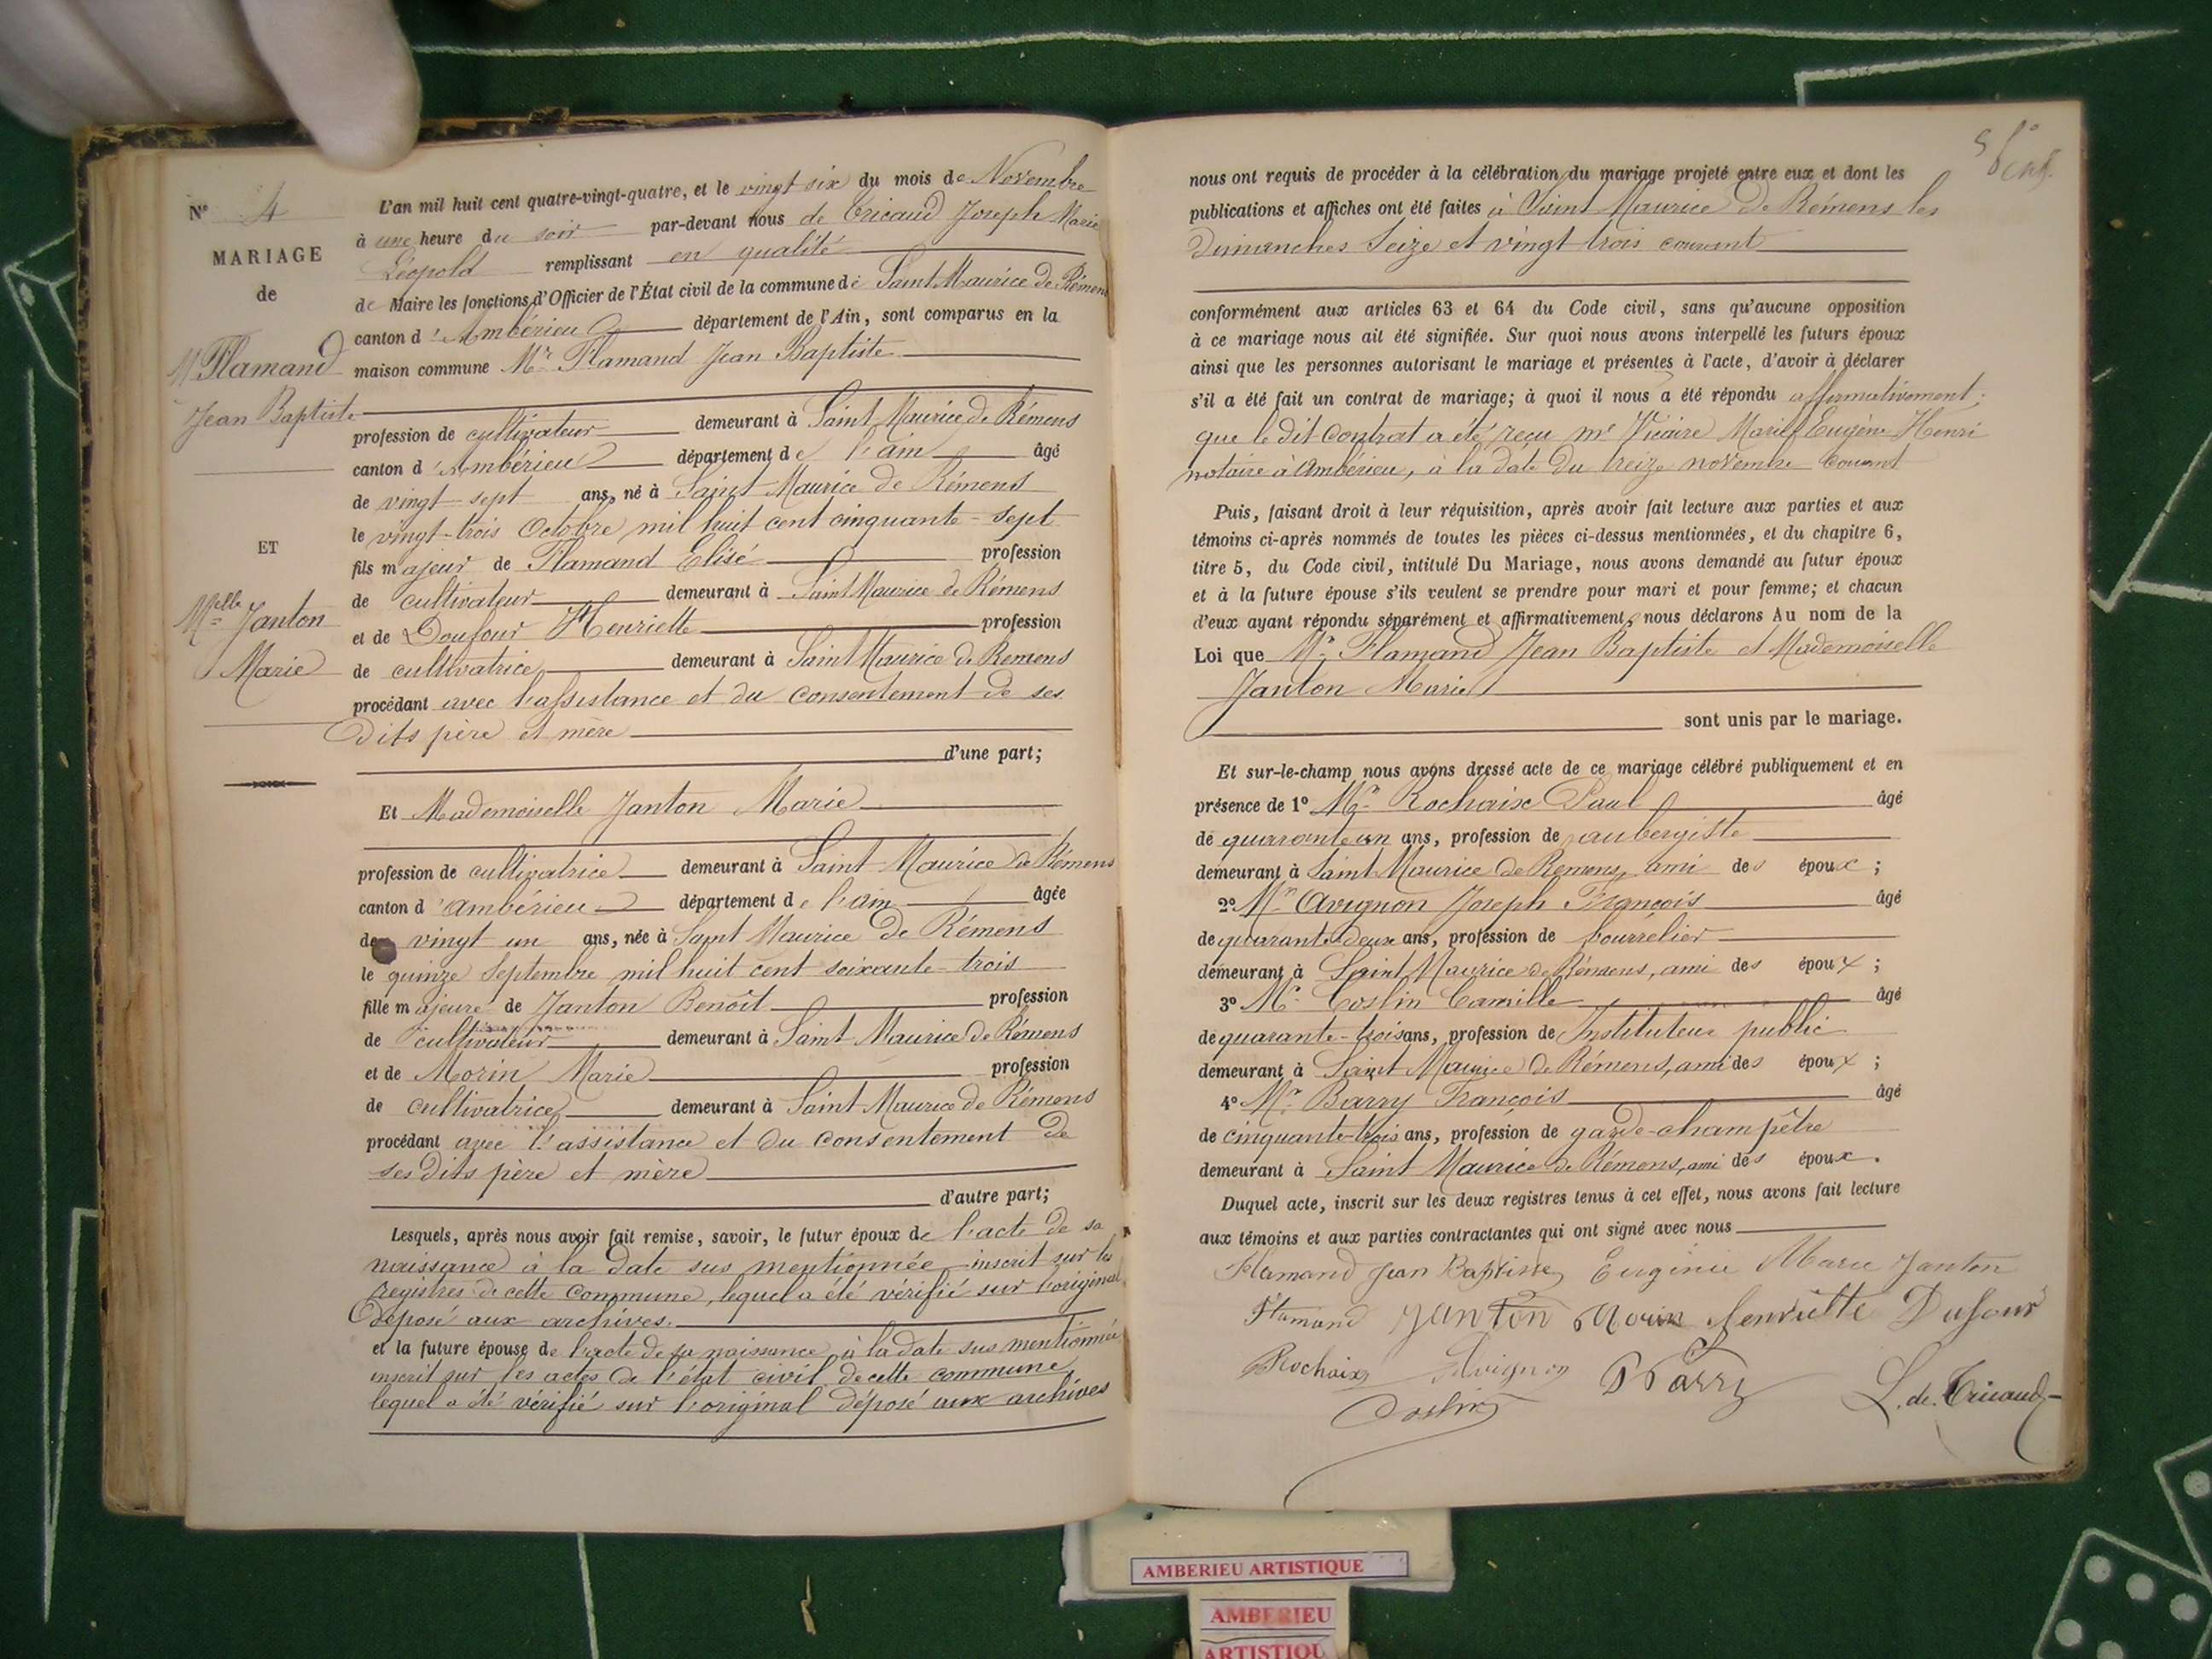 N° 4
MARIAGE
de
Mr Flamand
Jean Baptiste
ET
Melle Janton
Marie
L'an mil huit cent quatre-vingt-quatre, et le vingt six du mois de Novembre
à une heure du soir par-devant nous de Tricaud Joseph Marie
Léopold remplissant en qualité
de Maire les fonctions d'Officier de l'État civil de la commune de Saint Maurice de Rémens
canton d'Ambérieu département de l'Ain, sont comparus en la
maison commune Mr Flamand Jean Baptiste
profession de cultivateur demeurant à Saint Maurice de Rémens
canton d'Ambérieu département de l'ain âgé
de vingt-sept ans, né à Saint Maurice de Rémens
le vingt-trois Octobre mil huit cent cinquante-sept
fils majeur de Flamand Élisé profession
de cultivateur demeurant à Saint Maurice de Rémens
et de Doufour Henriette profession
de cultivatrice demeurant à Saint Maurice de Remens
procédant avec l'assistance et du consentement de ses
dits père et mère
d'une part;
Et Mademoiselle Janton Marie
profession de cultivatrice demeurant à Saint Maurice de Rémens
canton d'ambérieu département de l'ain âgée
de vingt un ans, née à Saint Maurice de Rémens
le quinze Septembre mil huit cent soixante-trois
fille majeure de Janton Benoît profession
de cultivateur demeurant à Saint Maurice de Rémens
et de Morin Marie profession
de cultivatrice demeurant à Saint Maurice de Rémens
procédant avec l'assistance et du consentement de
ses dits père et mère
d'autre part;
Lesquels, après nous avoir fait remise, savoir, le futur époux de l'acte de sa
naissance à la date sus mentionnée inscrit sur les
registres de cette commune, lequel a été vérifié sur l'original
déposé aux archives.
et la future épouse de l'acte de sa naissance à la date sus mentionnée
inscrit sur les actes de l'état civil de cette commune
lequel a été vérifié sur l'original déposé aux archives
nous ont requis de procéder à la célébration du mariage projeté entre eux et dont les
publications et affiches ont été faites à Saint Maurice de Rémens les
Dimanches Seize et vingt trois courant
conformément aux articles 63 et 64 du Code civil, sans qu'aucune opposition
à ce mariage nous ait été signifiée. Sur quoi nous avons interpellé les futurs époux
ainsi que les personnes autorisant le mariage et présentes à l'acte, d'avoir à déclarer
s'il a été fait un contrat de mariage; à quoi il nous a été répondu affirmativement.
que le dit Contrat a été reçu me Vicaire Marie Eugène Henri
notaire à Ambérieu, à la date du treize novembre courant
Puis, faisant droit à leur réquisition, après avoir fait lecture aux parties et aux
témoins ci-après nommés de toutes les pièces ci-dessus mentionnées, et du chapitre 6,
titre 5, du Code civil, intitulé Du Mariage, nous avons demandé au futur époux
et à la future épouse s'ils veulent se prendre pour mari et pour femme; et chacun
d'eux ayant répondu séparément et affirmativement, nous déclarons Au nom de la
Loi que Mr Flamand Jean Baptiste et Mademoiselle
Janton Marie
sont unis par le mariage.
Et sur-le-champ nous avons dressé acte de ce mariage célébré publiquement et en
présence de 1° Mr Rochaix Paul âgé
de quarante un ans, profession de aubergiste
demeurant à Saint Maurice de Remens, ami des époux;
2° Mr Avignon Joseph François âgé
de quarante-deux ans, profession de bourrelier
demeurant à Saint Maurice de Rémens, ami des époux;
3° Mr Coslin Camille âgé
de quarante-trois ans, profession de Instituteur public
demeurant à Saint Maurice de Rémens, ami des époux;
4° Mr Barry François âgé
de cinquante-trois ans, profession de garde-champêtre
demeurant à Saint Maurice de Rémens, ami des époux.
Duquel acte, inscrit sur les deux registres tenus à cet effet, nous avons fait lecture
aux témoins et aux parties contractantes qui ont signé avec nous
Flamand Jean Baptiste Eugénie Marie Janton
Flamand Janton Morin henriette Dufour
Rochaix Avignon Barry
Coslin L. de Tricaud
AMBERIEU ARTISTIQUE
AMBERIEU
ARTISTIQU